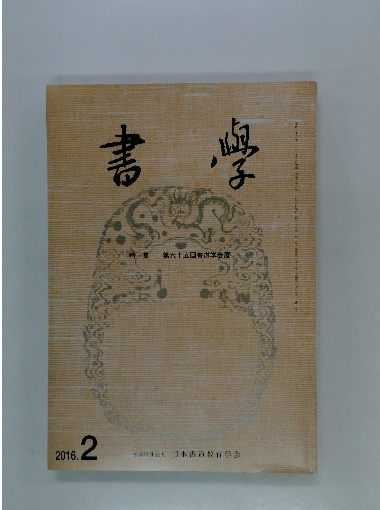 書學
特集 第六十五回書道学会展
2016. 2
公益財団法人 日本書道教育学会